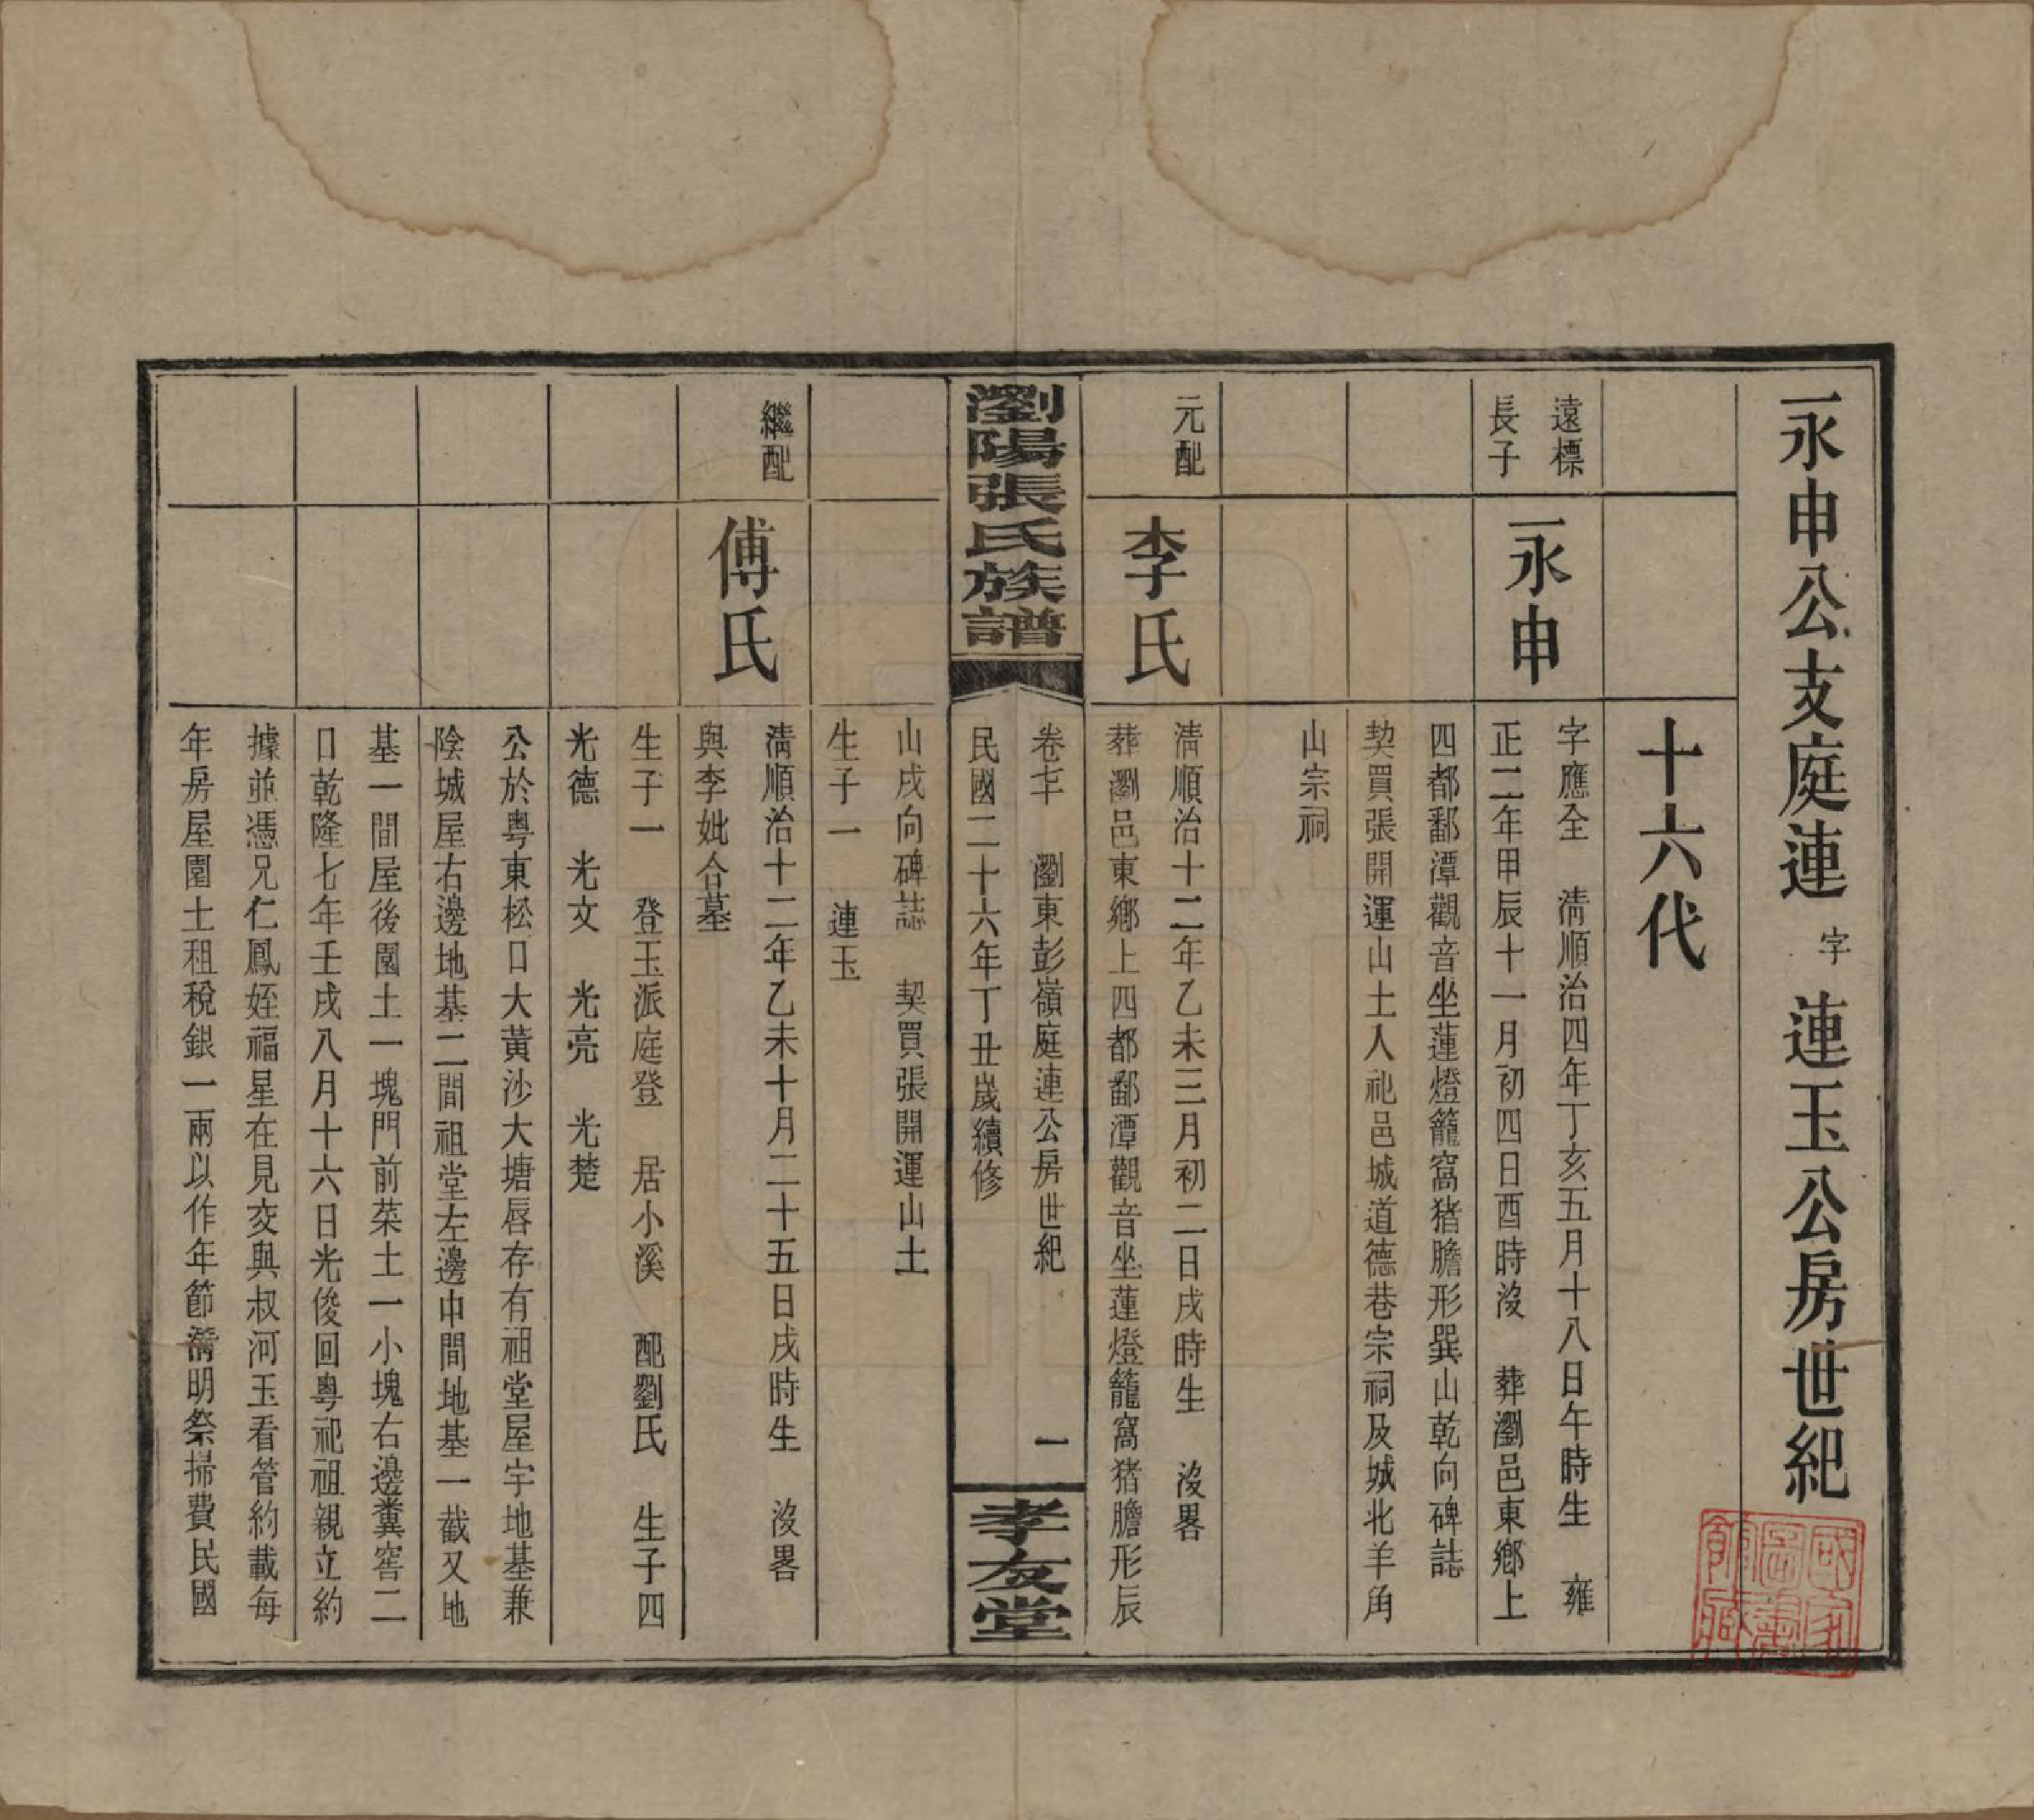 永申公支庭連字 連玉公房世紀
十六代
遠標
長子
永申
字應全 淸順治四年丁亥五月十八日午時生 雍
正二年甲辰十一月初四日酉時沒 葬瀏邑東鄉上
四都鄱潭觀音坐蓮燈籠窩猪膽形巽山乾向碑誌
契買張開運山土入祀邑城道德巷宗祠及城北羊角
山宗祠
元配
李氏
淸順治十二年乙未三月初二日戌時生 沒畧
葬瀏邑東鄉上四都鄱潭觀音坐蓮燈籠窩猪膽形辰
瀏陽張氏族譜
卷七 瀏東彭嶺庭連公房世紀 一
民國二十六年丁丑歲續修
孝友堂
山戌向碑誌 契買張開運山土
生子一 連玉
繼配
傅氏
淸順治十二年乙未十月二十五日戌時生 沒畧
與李妣合墓
生子一 登玉派庭登 居小溪 配劉氏 生子四
光德 光文 光亮 光楚
公於粵東松口大黃沙大塘唇存有祖堂屋宇地基兼
陰城屋右邊地基二間祖堂左邊中間地基一截又地
基一間屋後園土一塊門前菜土一小塊右邊糞窖二
口乾隆七年壬戌八月十六日光俊回粵祀祖親立約
據並憑兄仁鳳姪福星在見交與叔河玉看管約載每
年房屋園土租稅銀一兩以作年節淸明祭掃費民國
國家圖書館藏